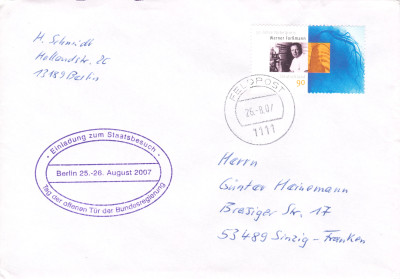 M. Schmidt
Hollandstr. 26
13189 Berlin
Werner Forßmann
90
FELDPOST
26.-8.07
1111
· Einladung zum Staatsbesuch ·
Berlin 25.-26. August 2007
Tag der offenen Tür der Bundesregierung
Herrn
Günter Heinemann
Str. 17
53489 Sinzig-Franken